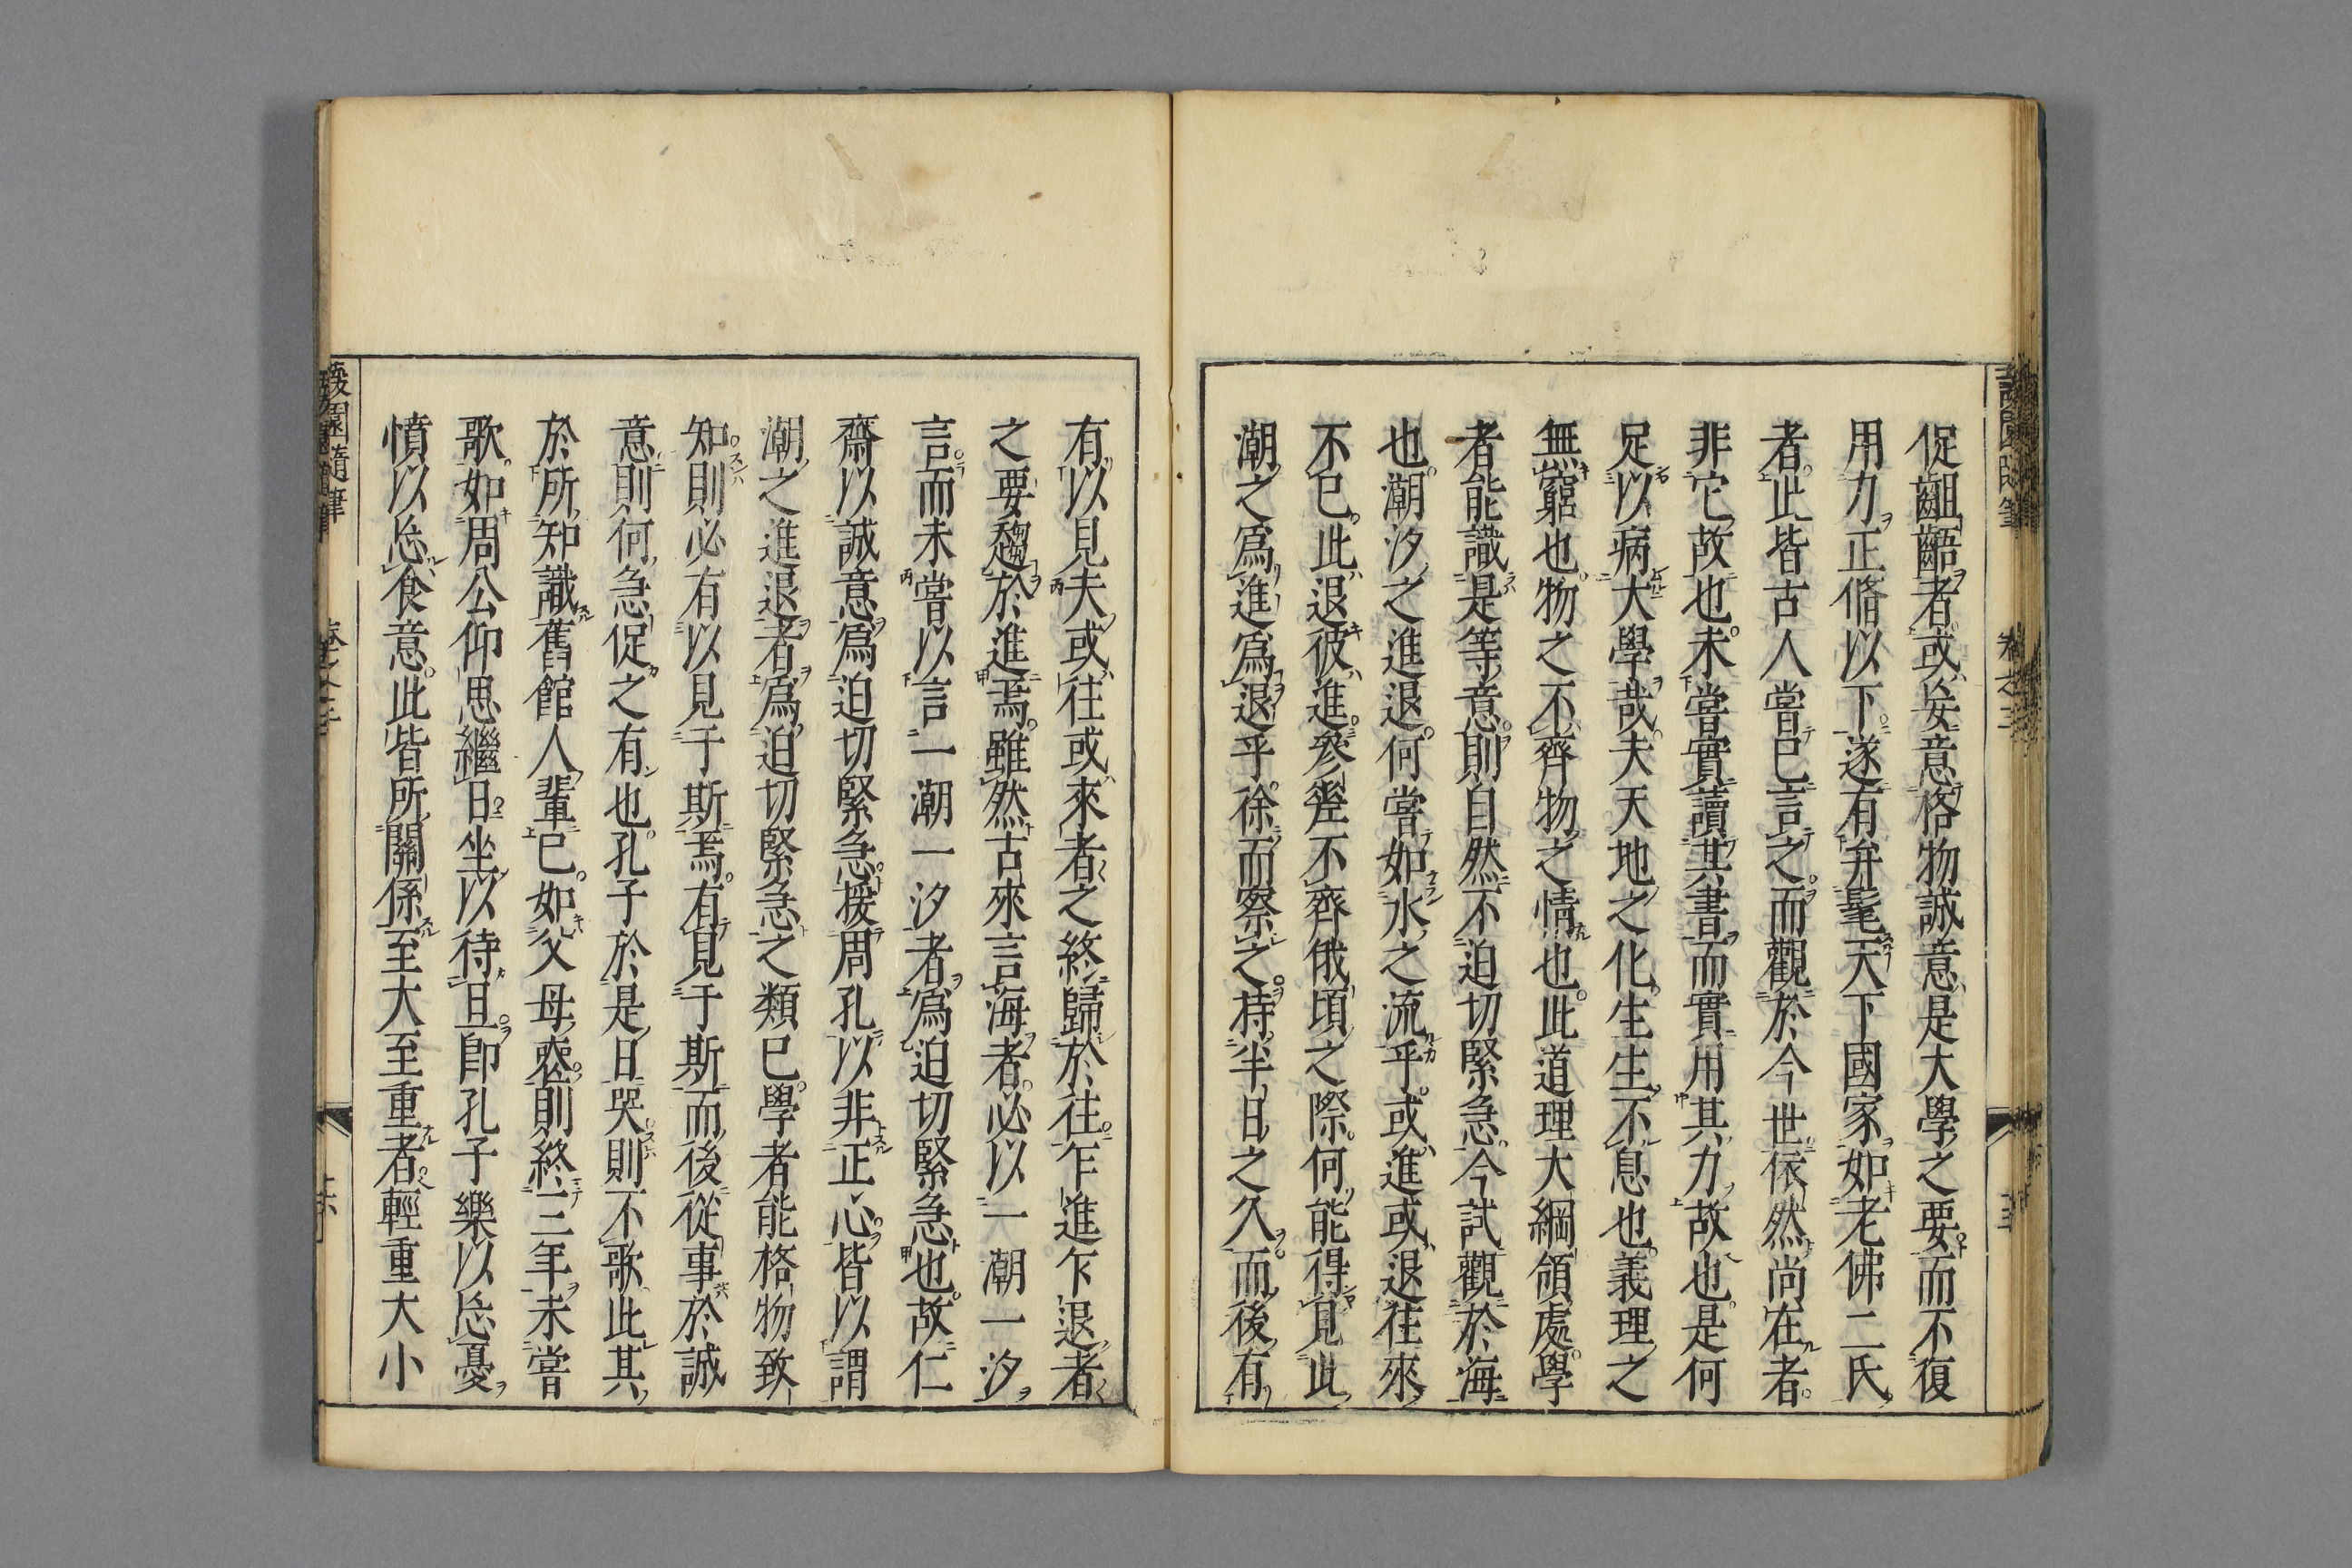 促齟齬者或妄意格物誠意是大學之要而不復
用力正脩以下遂有弁髦天下國家如老佛二氏
者此皆古人嘗已言之而觀於今世依然尚在者
非它故也未嘗實讀其書而實用其力故也是何
足以病大學哉夫天地之化生生不息也義理之
無窮也物之不齊物之情也此道理大綱領處學
者能識是等意則自然不迫切緊急今試觀於海
也潮汐之進退何嘗如水之流乎或進或退往來
不已此退彼進參差不齊俄頃之際何能得見此
潮之爲進爲退乎徐而察之待半日之久而後有
有以見夫或往或來者之終歸於往乍進乍退者
之要趨於進焉雖然古來言海者必以一潮一汐
言而未嘗以言一潮一汐者爲迫切緊急也故仁
齋以誠意爲迫切緊急援周孔以非正心皆以謂
潮之進退者爲迫切緊急之類已學者能格物致
知則必有以見于斯焉有見于斯而後從事於誠
意則何急促之有也孔子於是日哭則不歌此其
於所知識舊館人輩已如父母喪則終三年未嘗
歌如周公仰思繼日坐以待旦卽孔子樂以忘憂
憤以忘食意此皆所關係至大至重者輕重大小
蘐園隨筆
卷之三